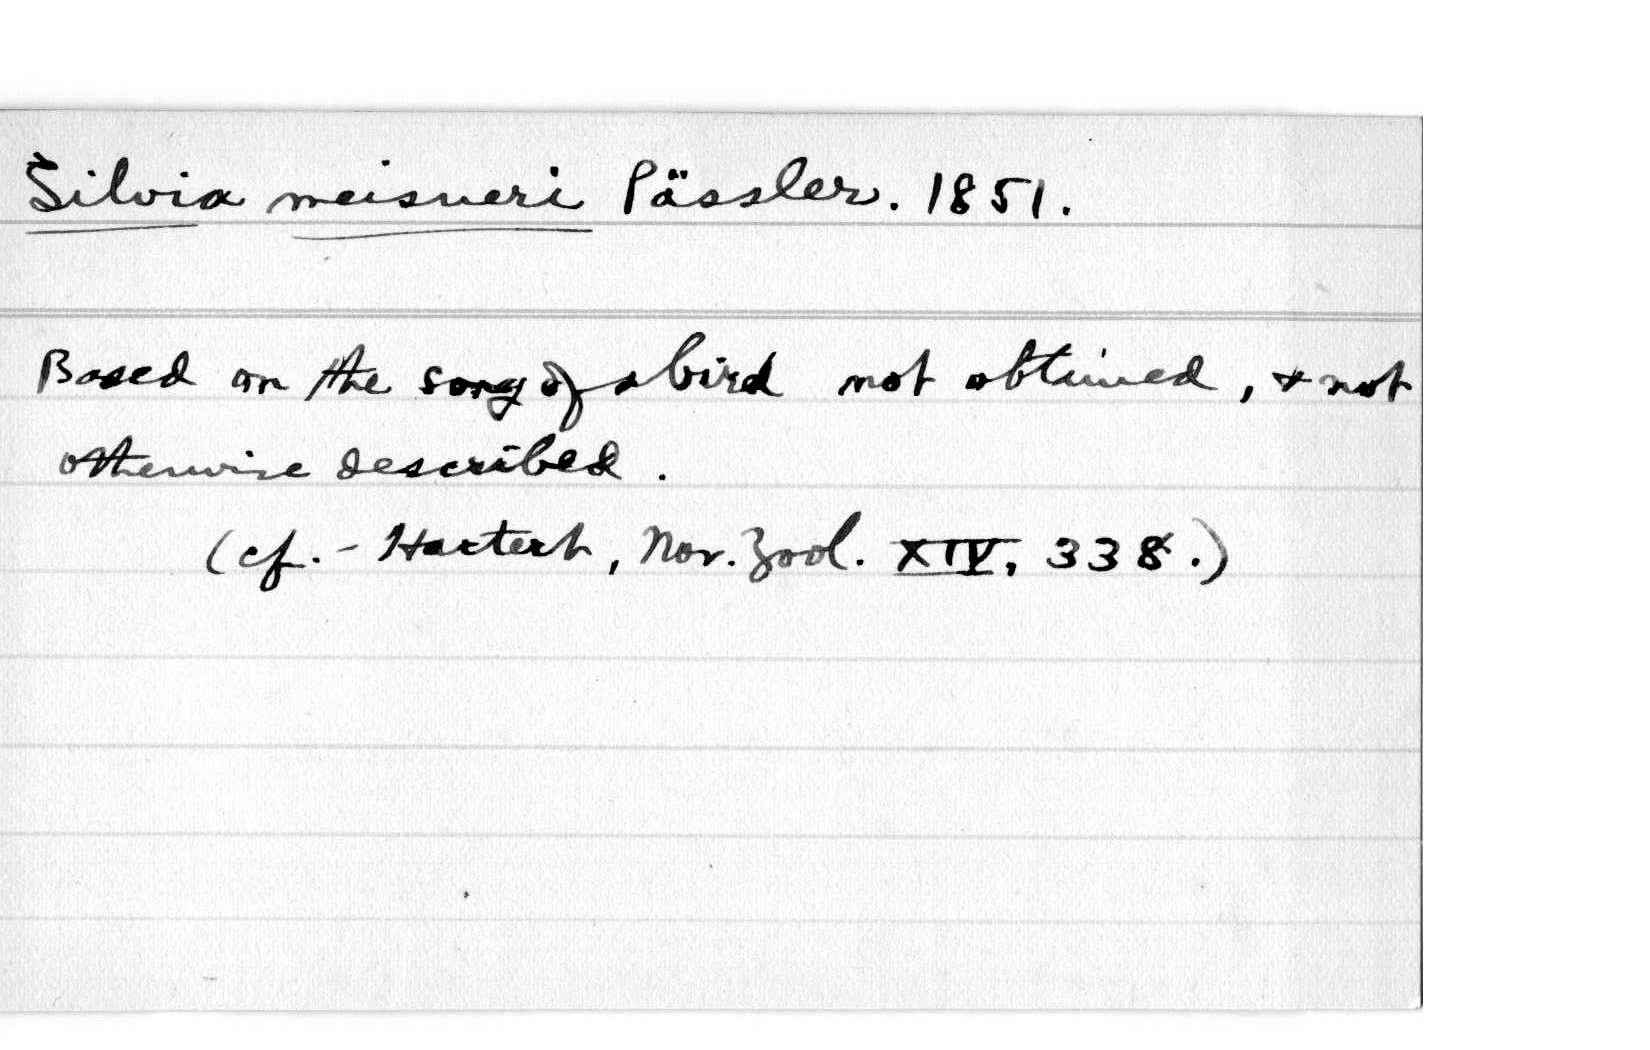 Silvia meisneri Pässler. 1851.
Based on the song of a bird not obtained, & not
otherwise described.
(cf. - Hartert, Nov. Zool. XIV, 338.)